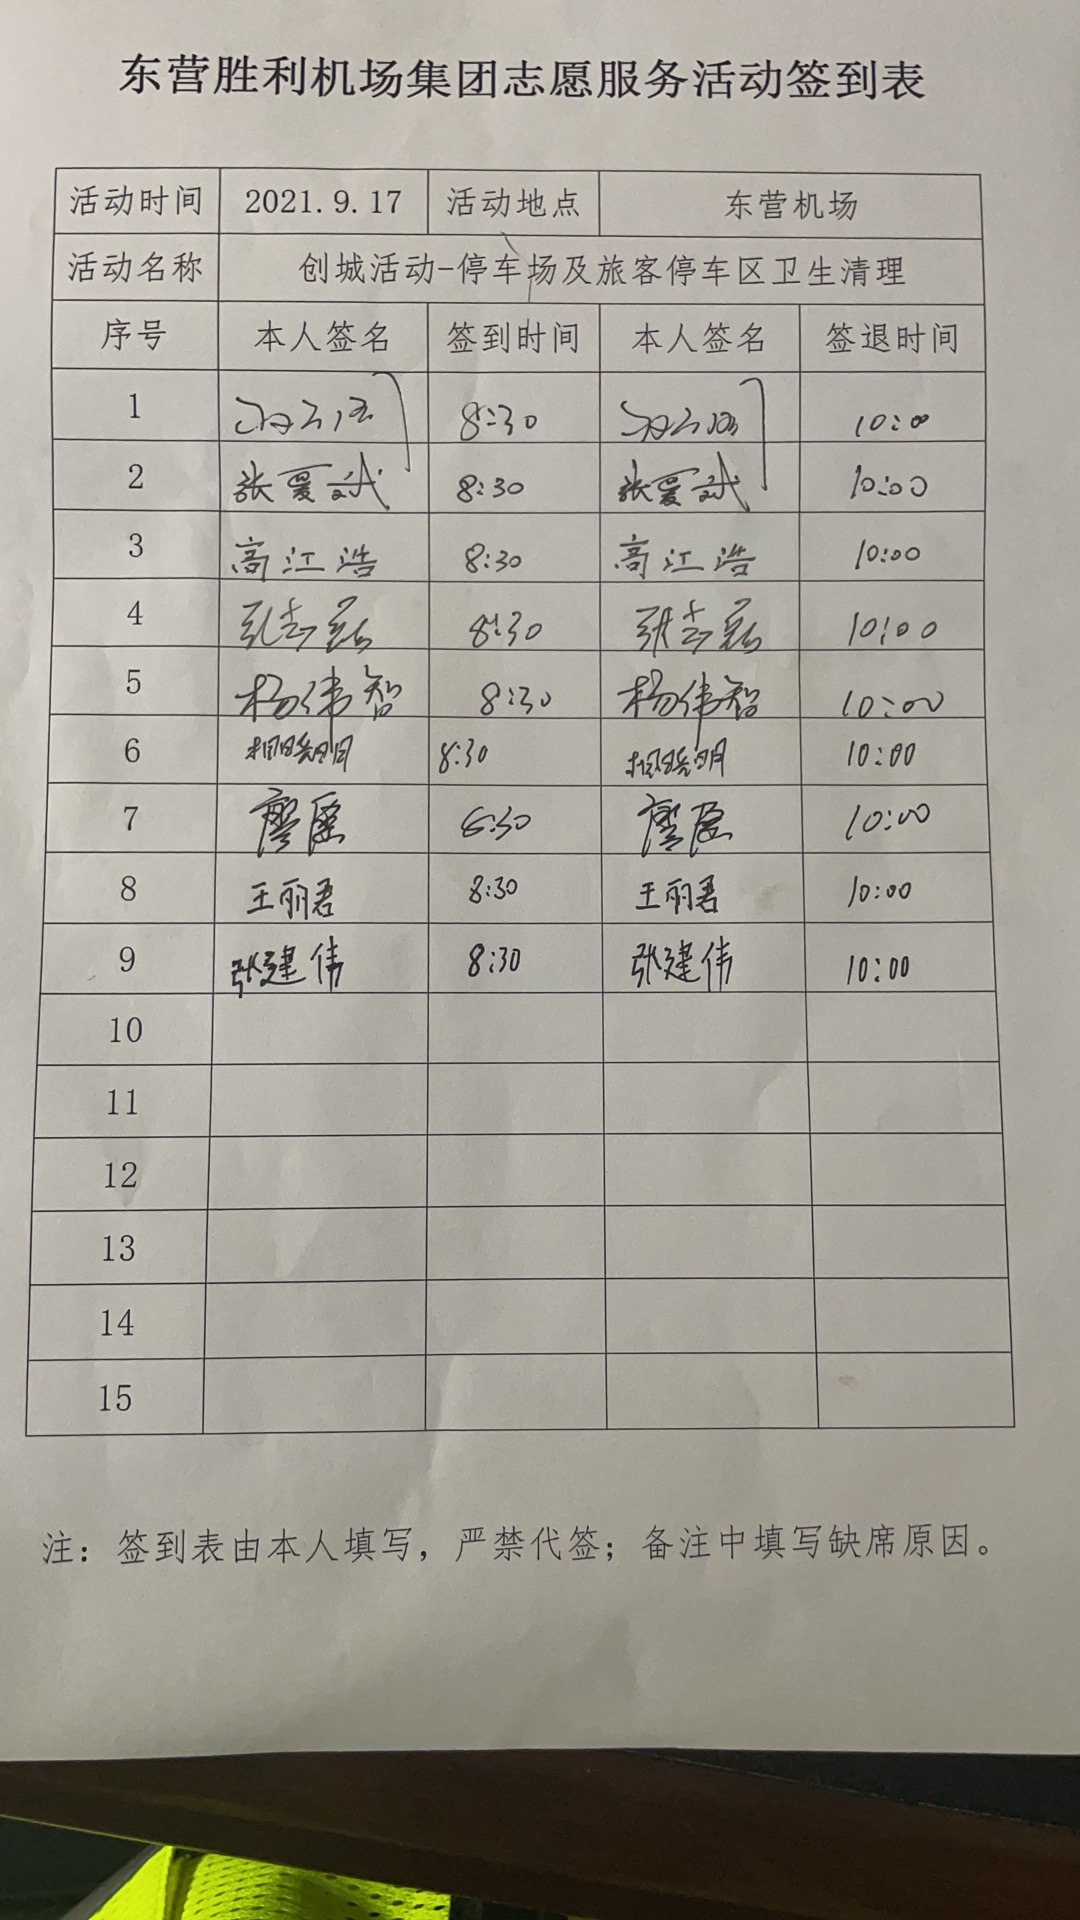 东营胜利机场集团志愿服务活动签到表
活动时间 2021.9.17 活动地点 东营机场
活动名称 创城活动-停车场及旅客停车区卫生清理
序号 本人签名 签到时间 本人签名 签退时间
1 8:30 10:00
2 张夏斌 8:30 张夏斌 10:00
3 高江浩 8:30 高江浩 10:00
4 8:30 10:00
5 杨伟智 8:30 杨伟智 10:00
6 8:30 10:00
7 8:30 10:00
8 王丽君 8:30 王丽君 10:00
9 张建伟 8:30 张建伟 10:00
10
11
12
13
14
15
注：签到表由本人填写，严禁代签；备注中填写缺席原因。